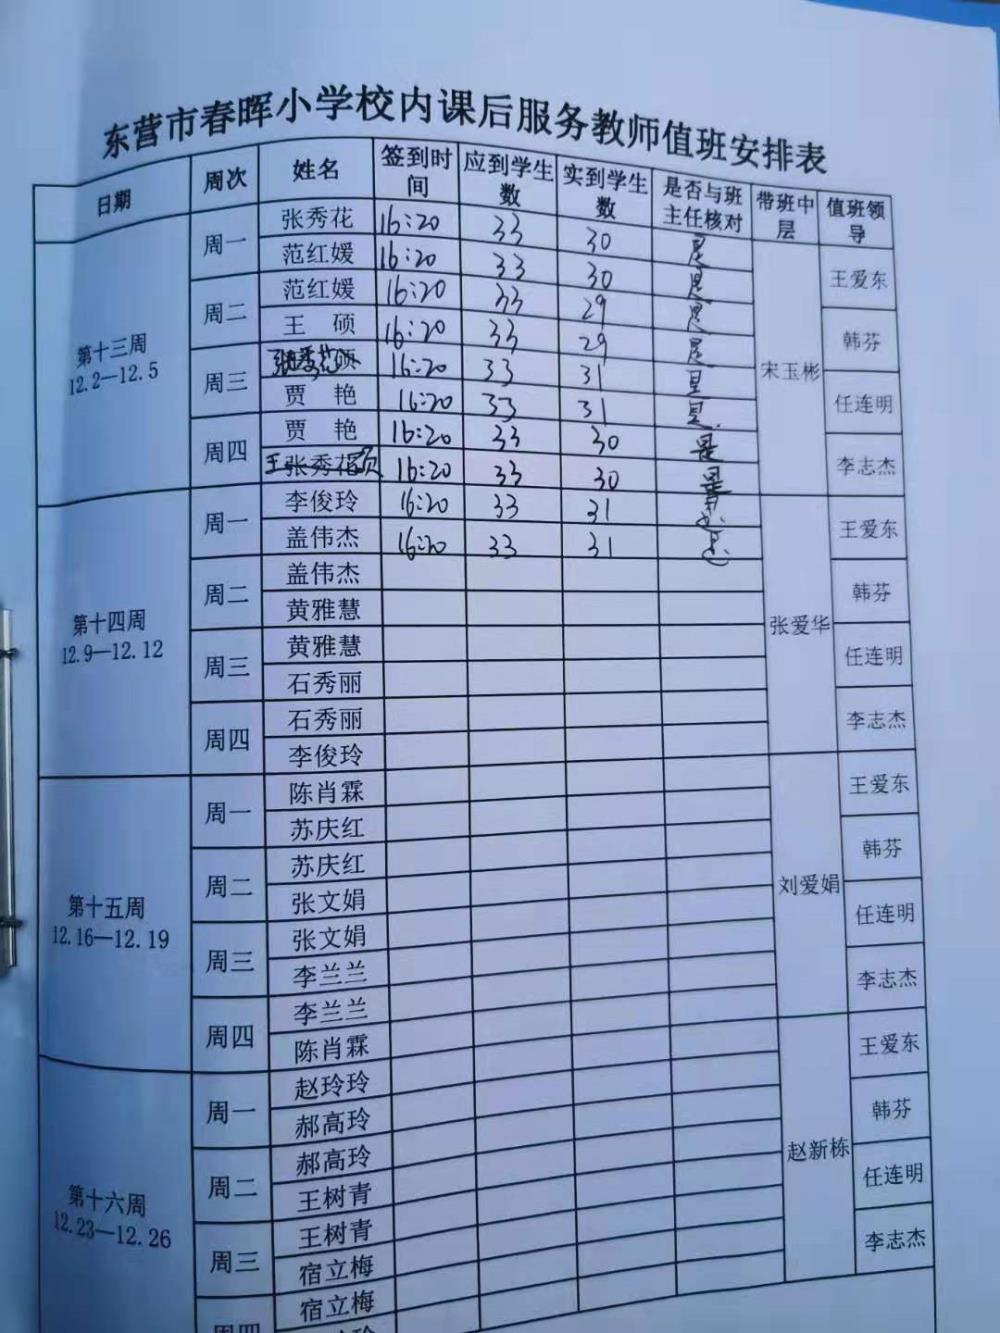 东营市春晖小学校内课后服务教师值班安排表
日期 周次 姓名 签到时间 应到学生数 实到学生数 是否与班主任核对 带班中层 值班领导
第十三周 12.2—12.5 周一 张秀花 16:20 33 30 是 宋玉彬 王爱东
范红媛 16:20 33 30 是
周二 范红媛 16:20 33 29 是 韩芬
王 硕 16:20 33 29 是
周三 张秀花 16:20 33 31 是 任连明
贾 艳 16:20 33 31 是
周四 贾 艳 16:20 33 30 是 李志杰
王硕 张秀花 16:20 33 30 是
第十四周 12.9—12.12 周一 李俊玲 16:20 33 31 是 张爱华 王爱东
盖伟杰 16:20 33 31 是
周二 盖伟杰 韩芬
黄雅慧
周三 黄雅慧 任连明
石秀丽
周四 石秀丽 李志杰
李俊玲
第十五周 12.16—12.19 周一 陈肖霖 刘爱娟 王爱东
苏庆红
周二 苏庆红 韩芬
张文娟
周三 张文娟 任连明
李兰兰
周四 李兰兰 李志杰
陈肖霖
第十六周 12.23—12.26 周一 赵玲玲 赵新栋 王爱东
郝高玲
周二 郝高玲 韩芬
王树青
周三 王树青 任连明
宿立梅
周四 宿立梅 李志杰